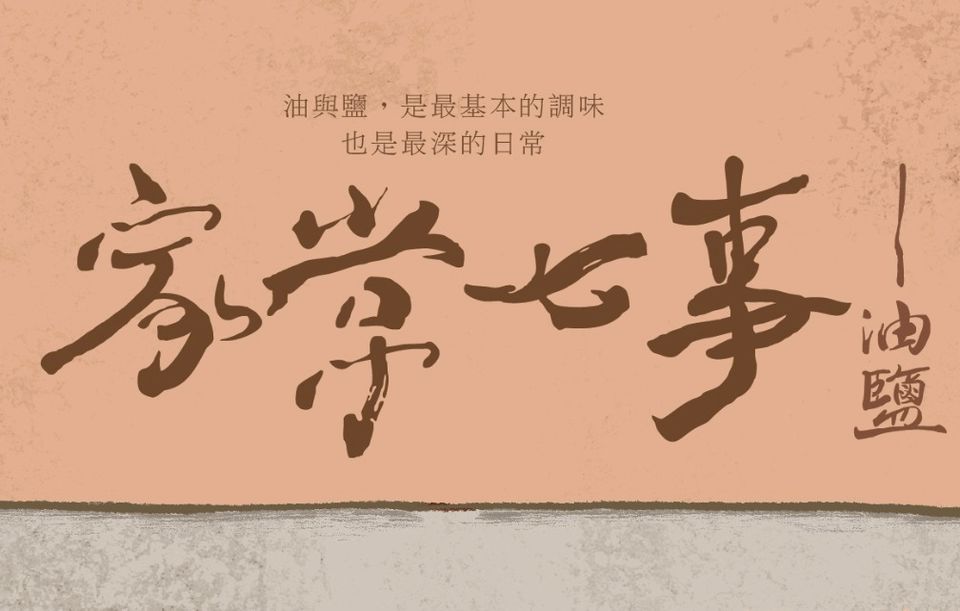 油與鹽，是最基本的調味
也是最深的日常
家常七事
｜油鹽